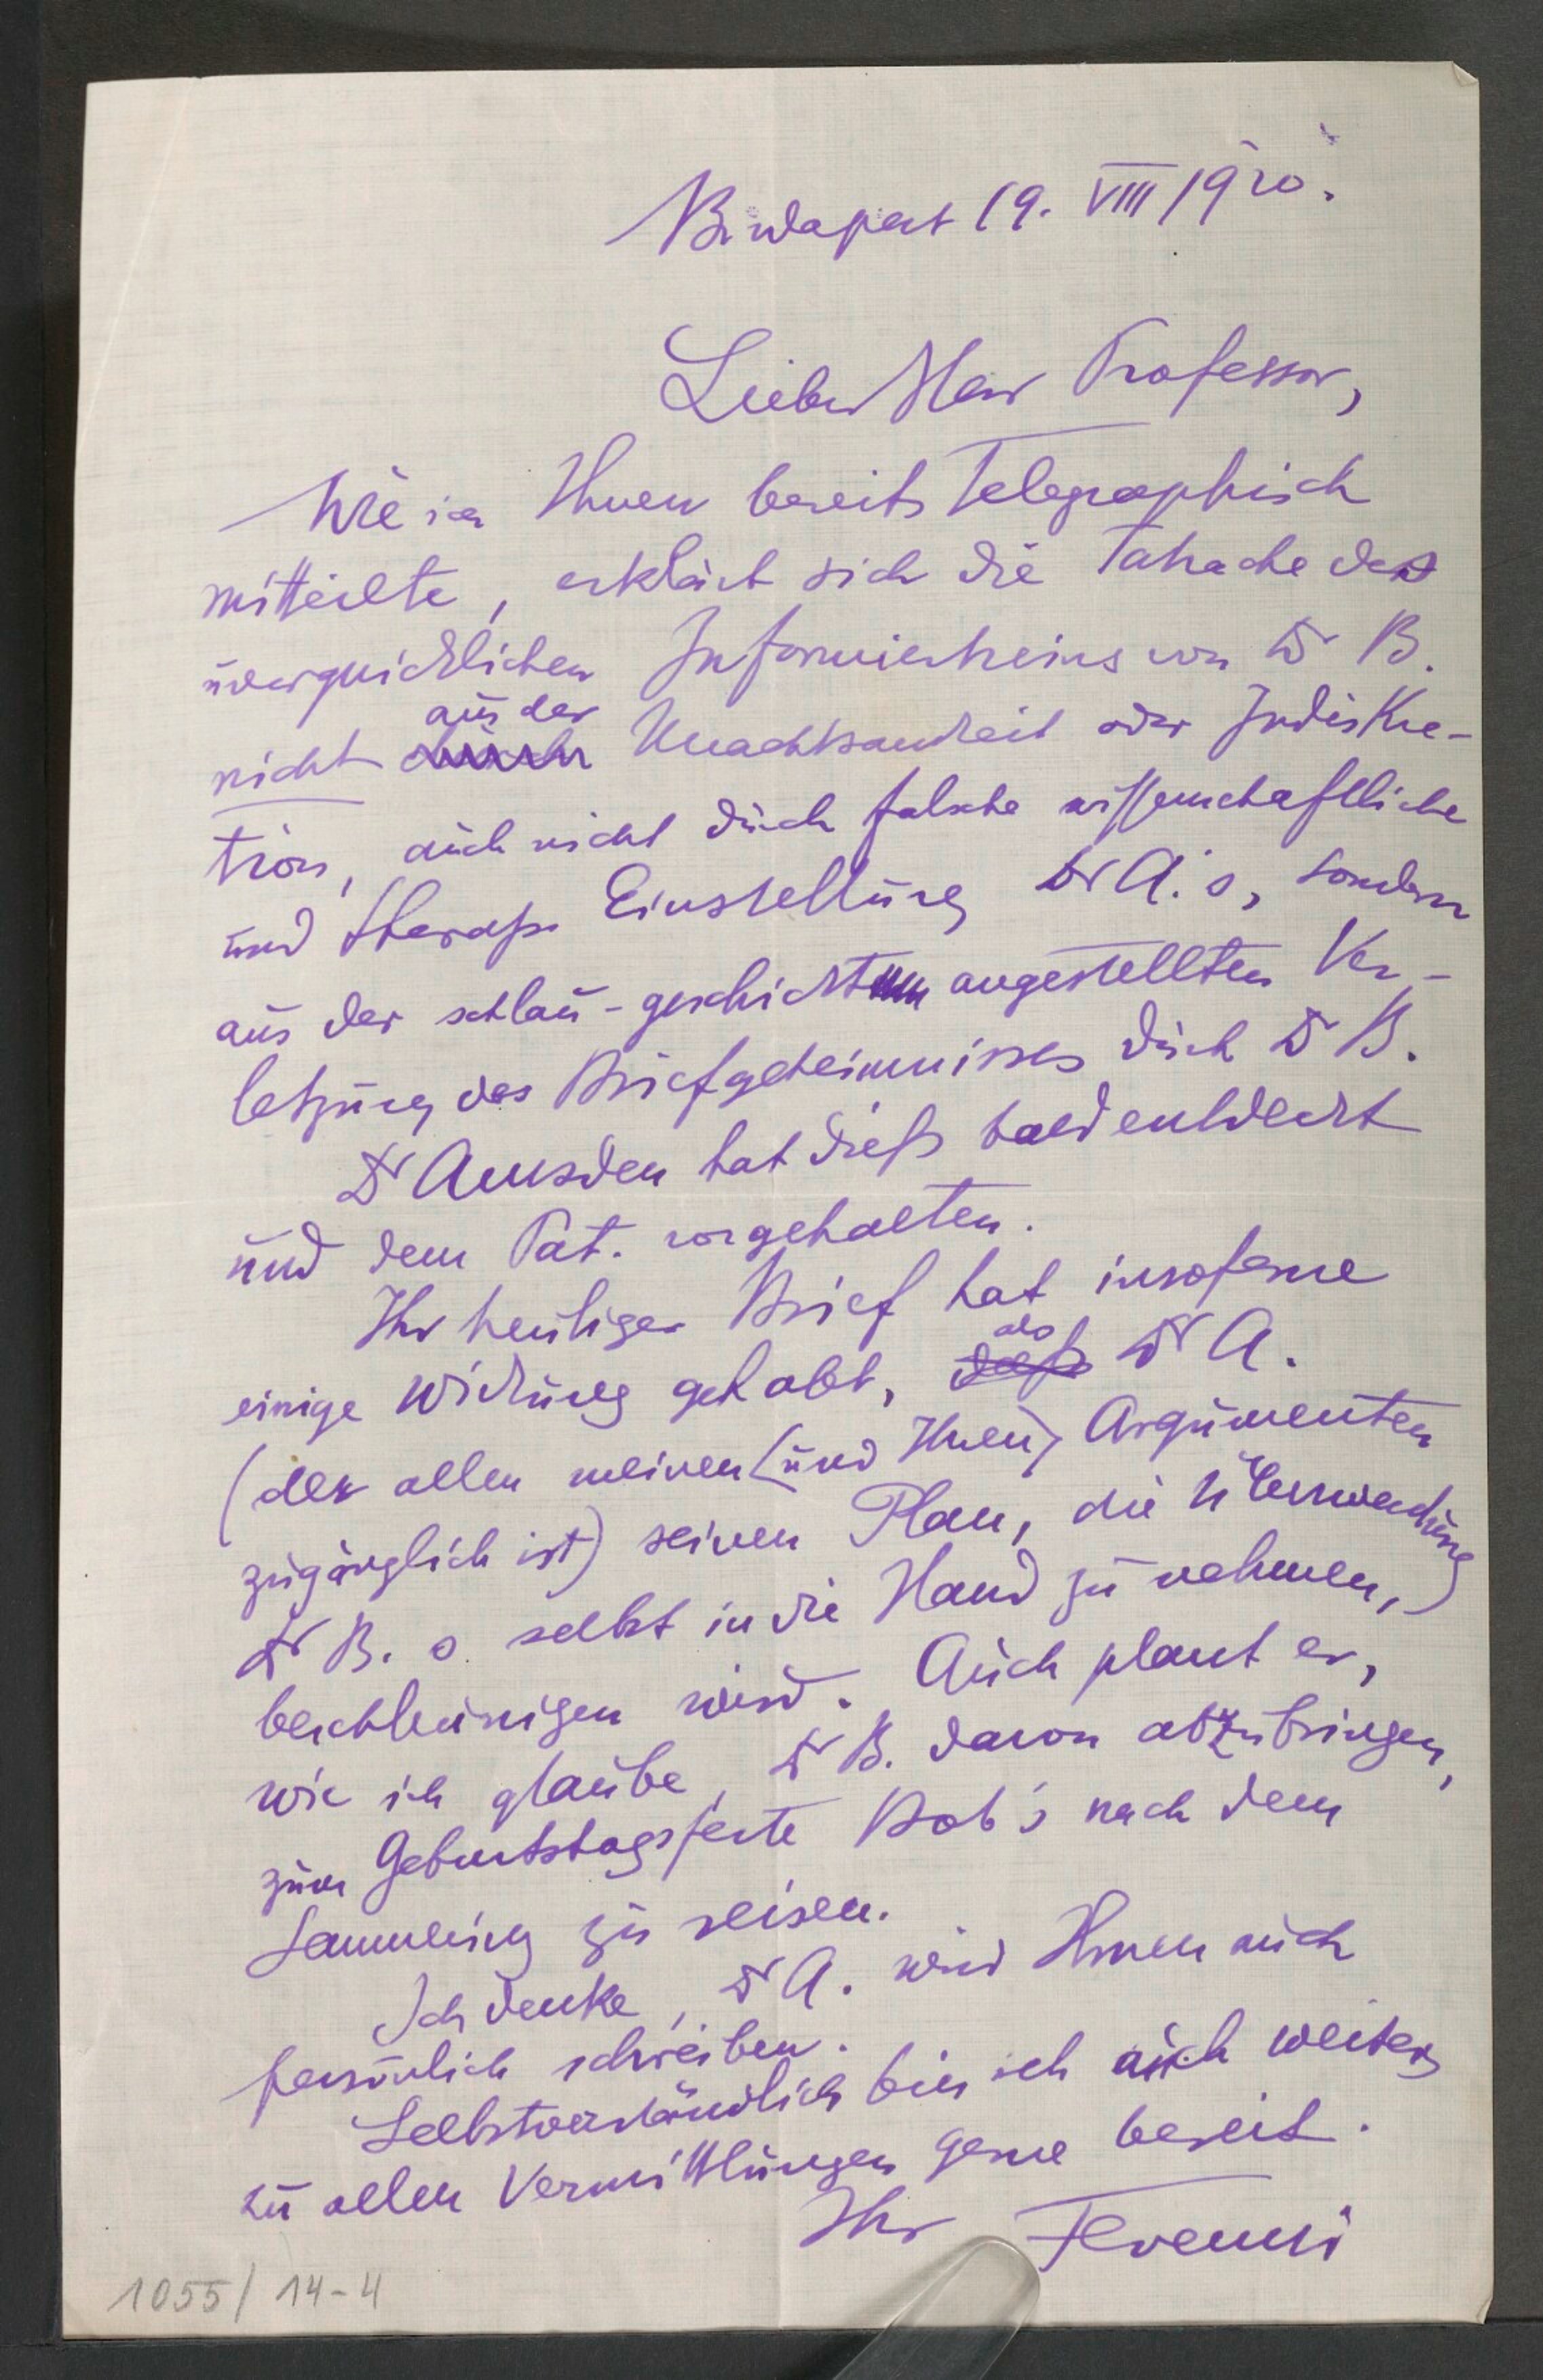 Budapest 19. VIII 1920.
Lieber Herr Professor,
Wie ich Ihnen bereits telegraphisch
mitteilte, erklärt sich die Tatsache des
unerquicklichen Informiertseins von Dr B.
nicht durch aus der Unachtsamkeit oder Indiskre-
tion, auch nicht durch falsche wissenschaftliche
und therap. Einstellung Dr A.'s, sondern
aus der schlau-geschickt angestellten Ver-
letzung des Briefgeheimnisses durch Dr B.
Dr Amsden hat dieß bald entdeckt
und dem Pat. vorgehalten.
Ihr heutiger Brief hat insoferne
einige Wirkung gehabt, daß als Dr A.
(der allen meinen (und Ihren) Argumenten
zugänglich ist) seinen Plan, die Überwachung
Dr B.s selbst in die Hand zu nehmen,
beschleunigen wird. Auch plant er,
wie ich glaube, Dr B. davon abzubringen,
zum Geburtstagsfeste Bob's nach dem
Semmering zu reisen.
Ich denke, Dr A. wird Ihnen auch
persönlich schreiben.
Selbstverständlich bin ich auch weiters
zu allen Vermittlungen gerne bereit.
Ihr Ferenczi
1055/14-4